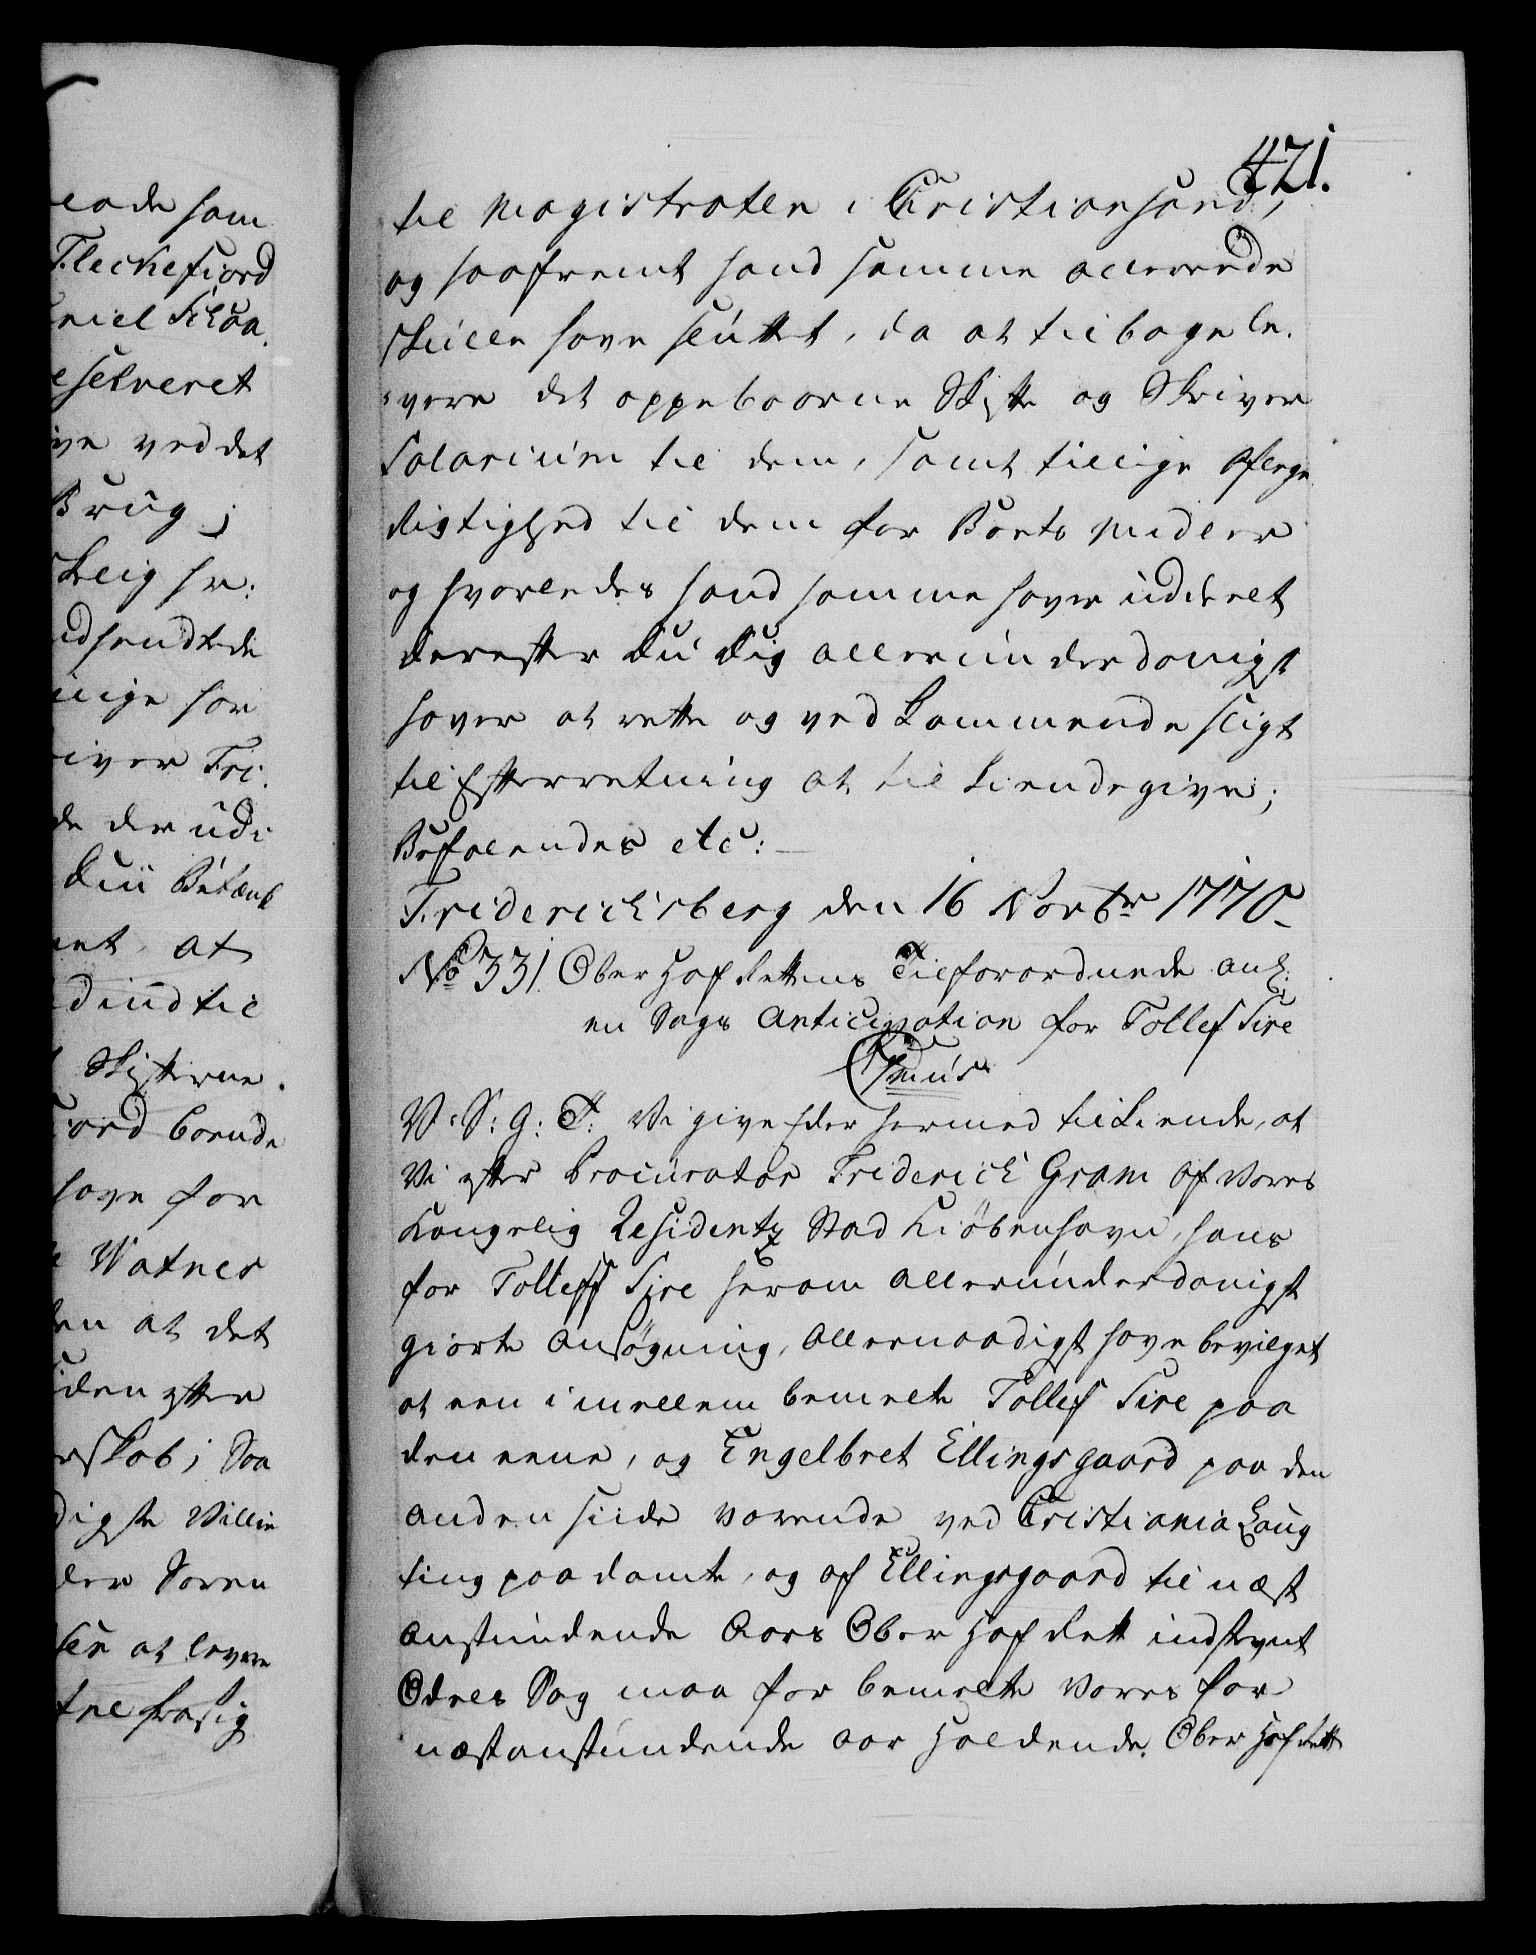 eade som
Fleckefiord
niel Schaa
eserveret
ive ved det
Brug;
skeig hr:
udsendte de
inige for
iver Fri
de der udi
Du Betænk
net at
d ind til
Skifterne.
iord boende
have for
Watnes
en at det
iden efter
rskab; Saa
digste Villie
der Soren
ser at levere
fra sig
471.
til Magistraten i Christiansand,
og saafremt hand samme allereede
skulle have sluttet, da at tilbagele-
vere det oppebaarne Skifte og Skriver
Salarium til dem, samt tillige Pleye
Rigtighed til dem for Boets Midler
og hvorledes hand samme haver uddeelt
derefter Du Dig allerunderdanigst
haver at rette og vedkommende sligt
til Efterretning at tilkiendegive;
Befalendes etc:
Friderichsberg den 16 Novbr 1770
No 331 Ober Hof Rettens Tilforordnede ank:
en Sags Anticipation for Tollef Sire
V: S: G: T: Vi give Eder hermed tilkiende, at
Vi efter Procurator Friderich Gram af Vores
Kongelig Residentz Stad Kiöbenhavn, hans
for Tolleff Sire herom allerunderdanigst
giorte Ansøgning, allernaadigst have bevilget
at een imellem bemelte Tollef Sire paa
den eene, og Engelbret Ellingsgaard paa den
anden Siide værende ved Christiania Laug
ting paadømte, og af Ellingsgaard til næst
anstundende Aars Ober Hof Rett indstevnt
Odels Sag maa for bemelte Vores for
næstanstundende Aar holdende Ober Hof Rett